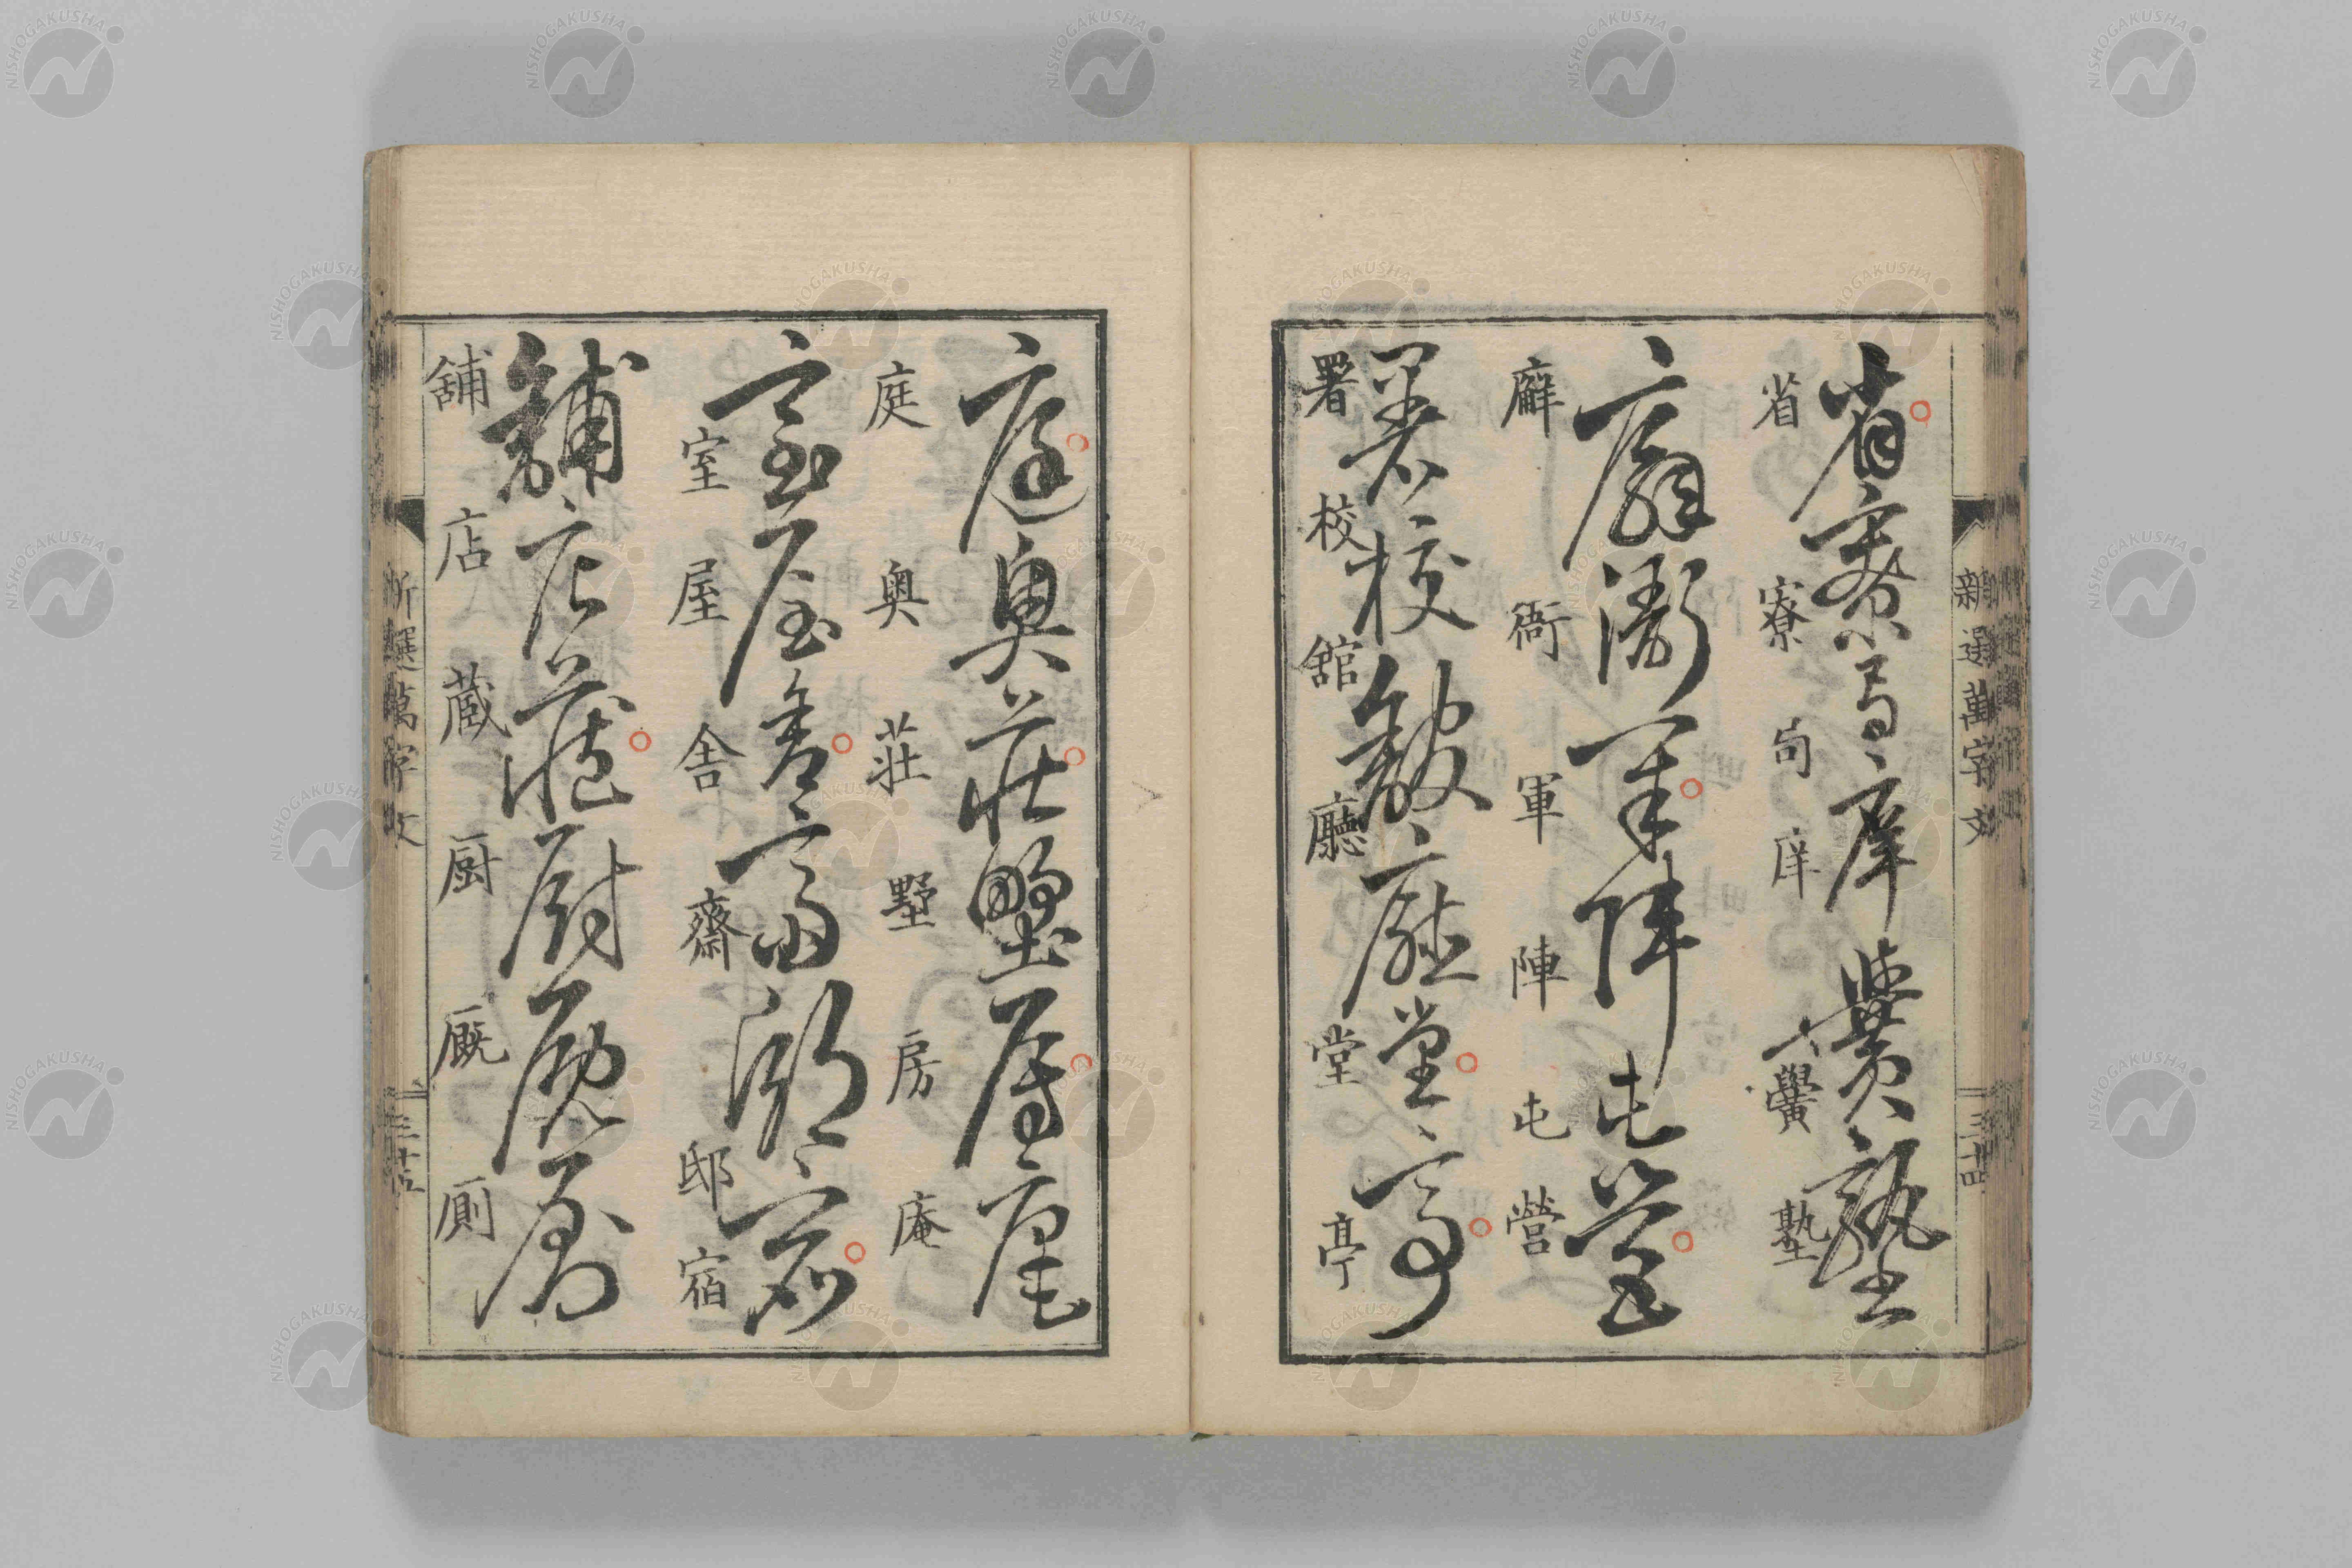 新選萬字文
三十四
省寮局庠黌塾
省寮局庠黌塾
廨衙軍陣屯營
廨衙軍陣屯營
署校舘廳堂亭
署校舘廳堂亭
庭奥莊墅房庵
庭奥莊墅房庵
室屋舎齋邸宿
室屋舎齋邸宿
舗店蔵厨厩厠
舗店蔵厨厩厠
新選萬字文
三十五
NISHOGAKUSHA